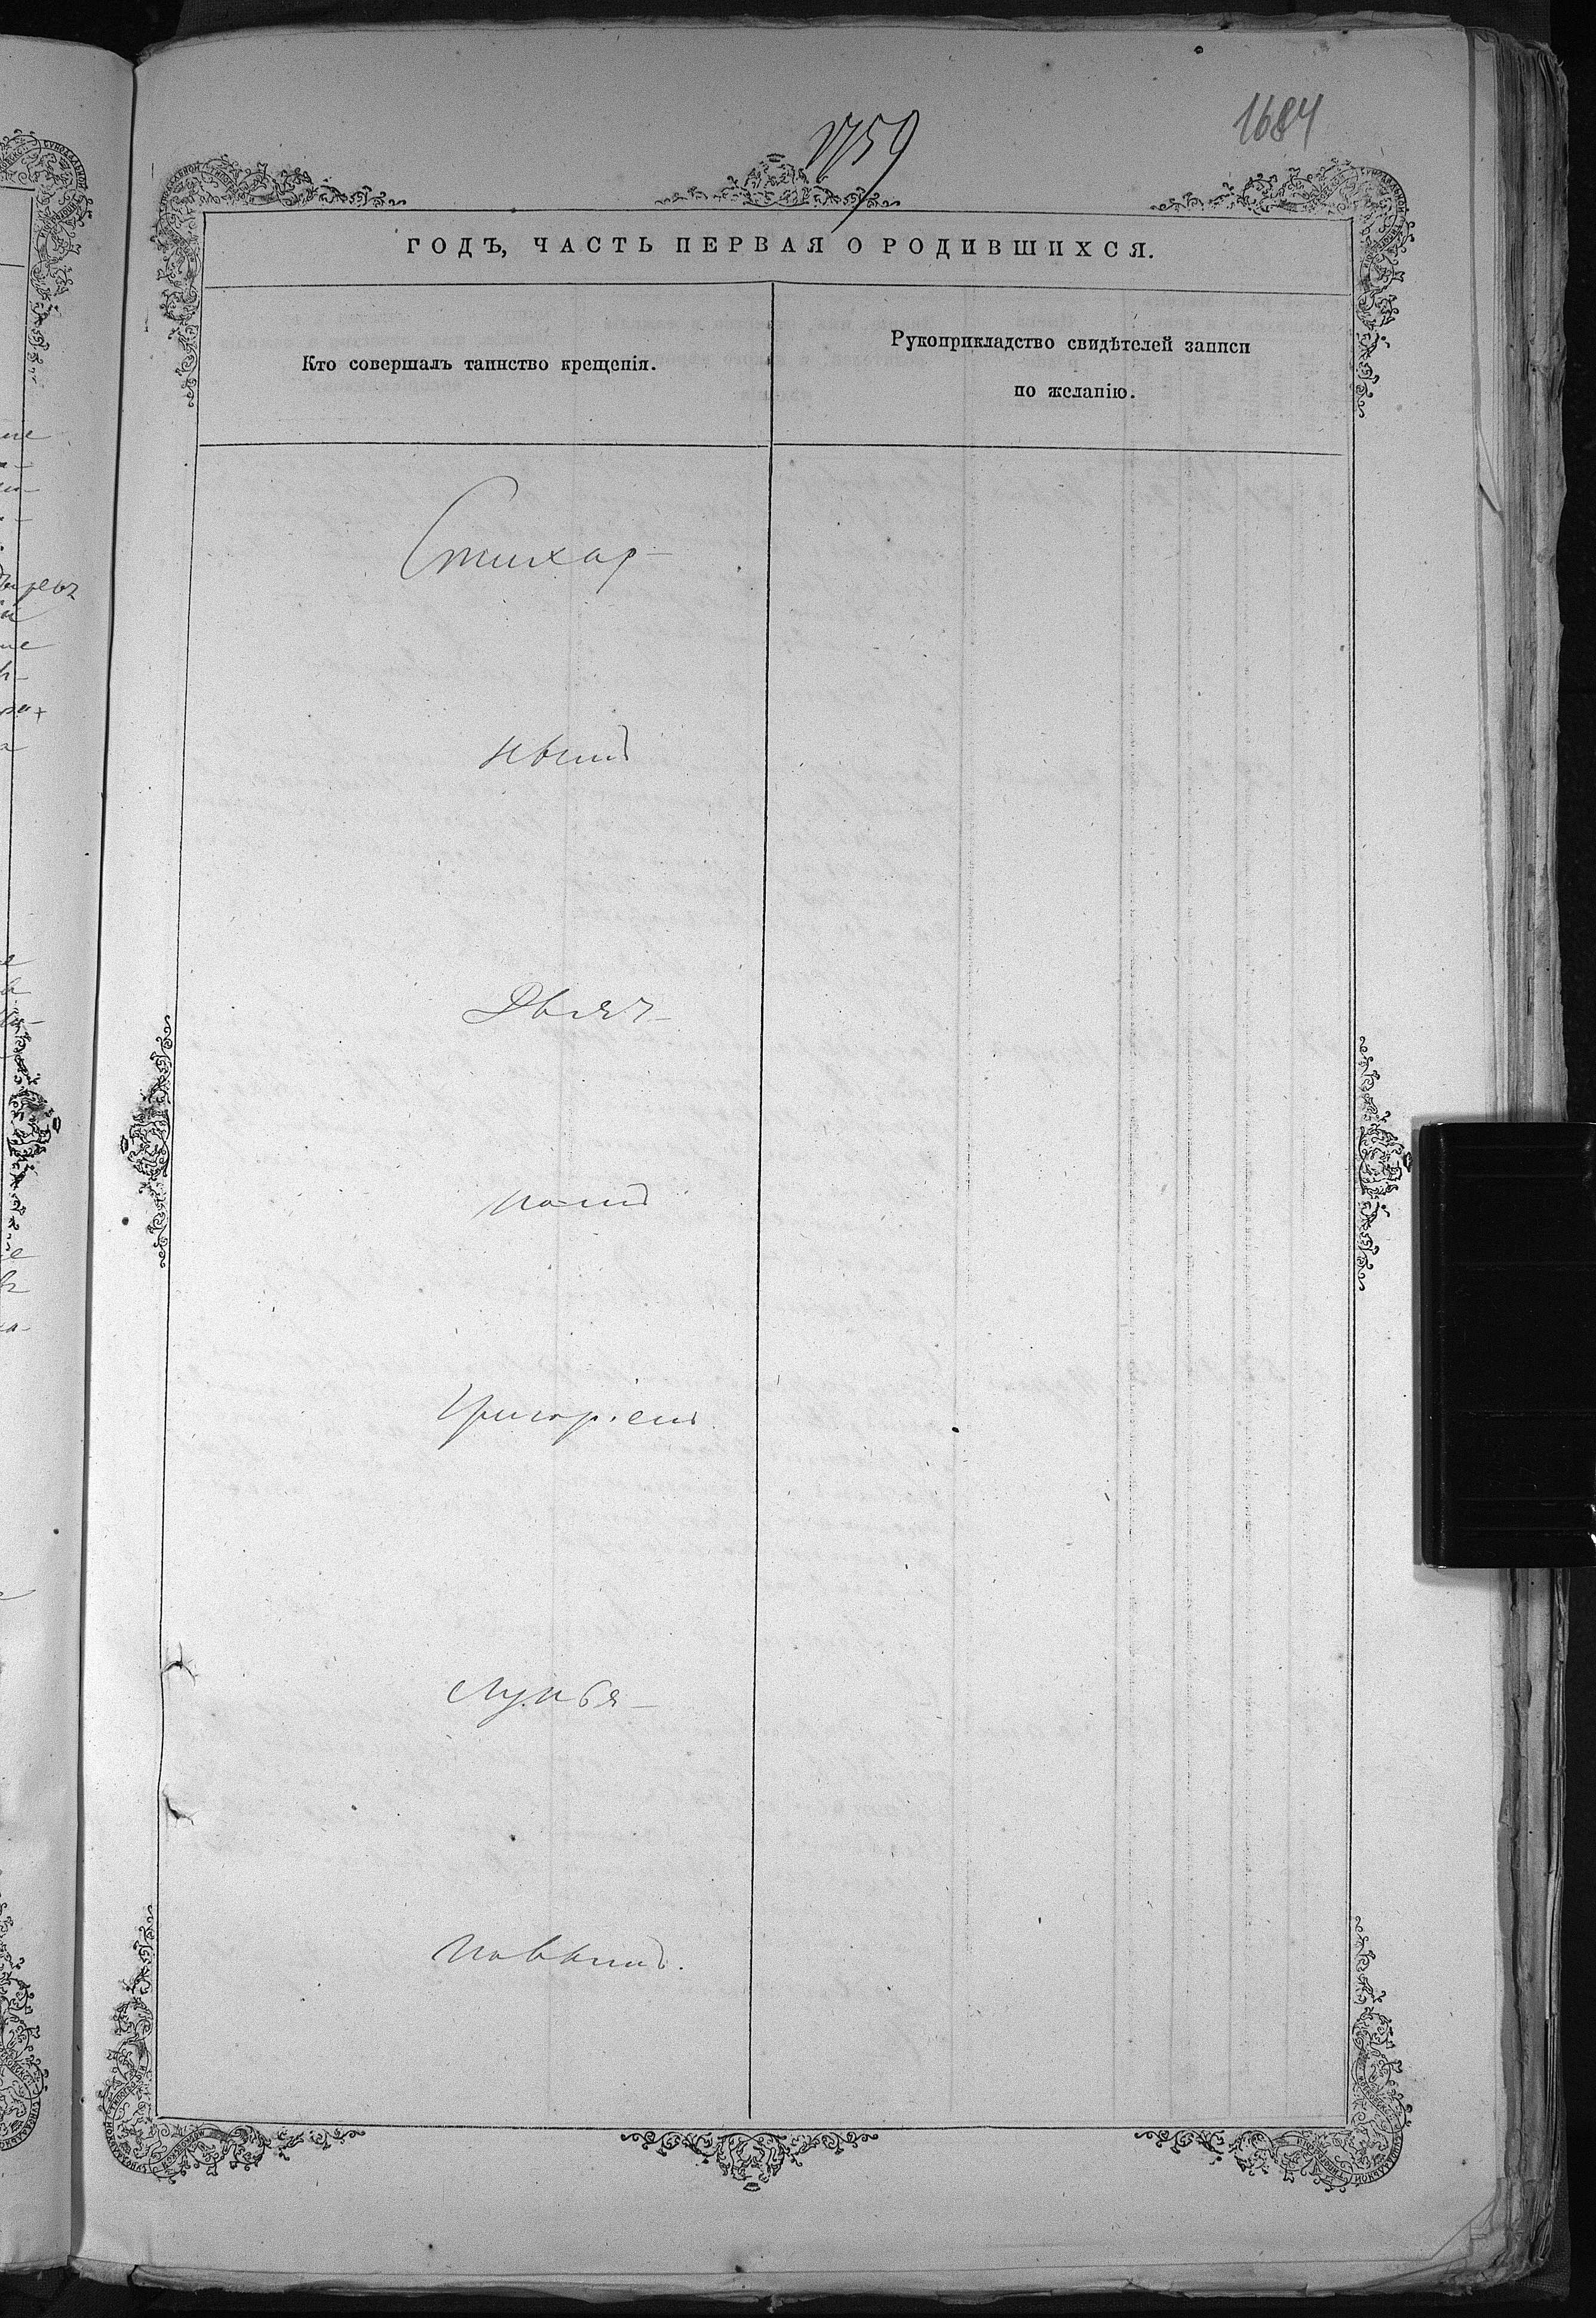 1759
1684
ГОДЪ, ЧАСТЬ ПЕРВАЯ О РОДИВШИХСЯ.
Кто совершалъ таинство крещенія.
Рукоприкладство свидѣтелей записи
по желанію.
Стихар-
нымъ
Дьяч-
комъ
Григоріемъ
Лукья-
новымъ.